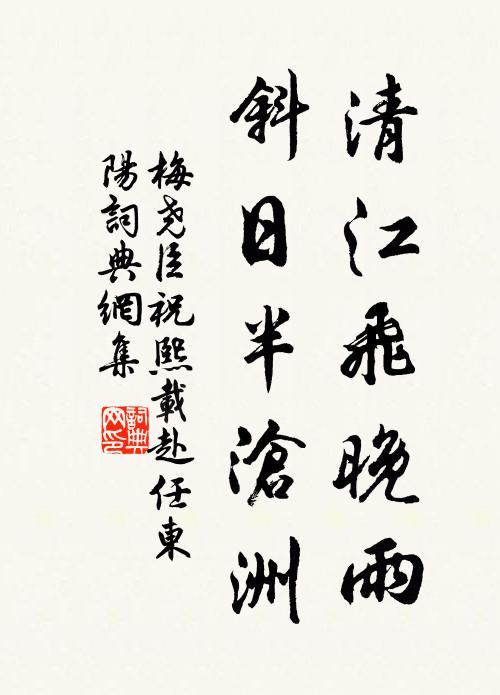 清江飛晚雨
斜日半滄洲
梅堯臣祝熙載赴任東
陽詞典網集
詞典网印